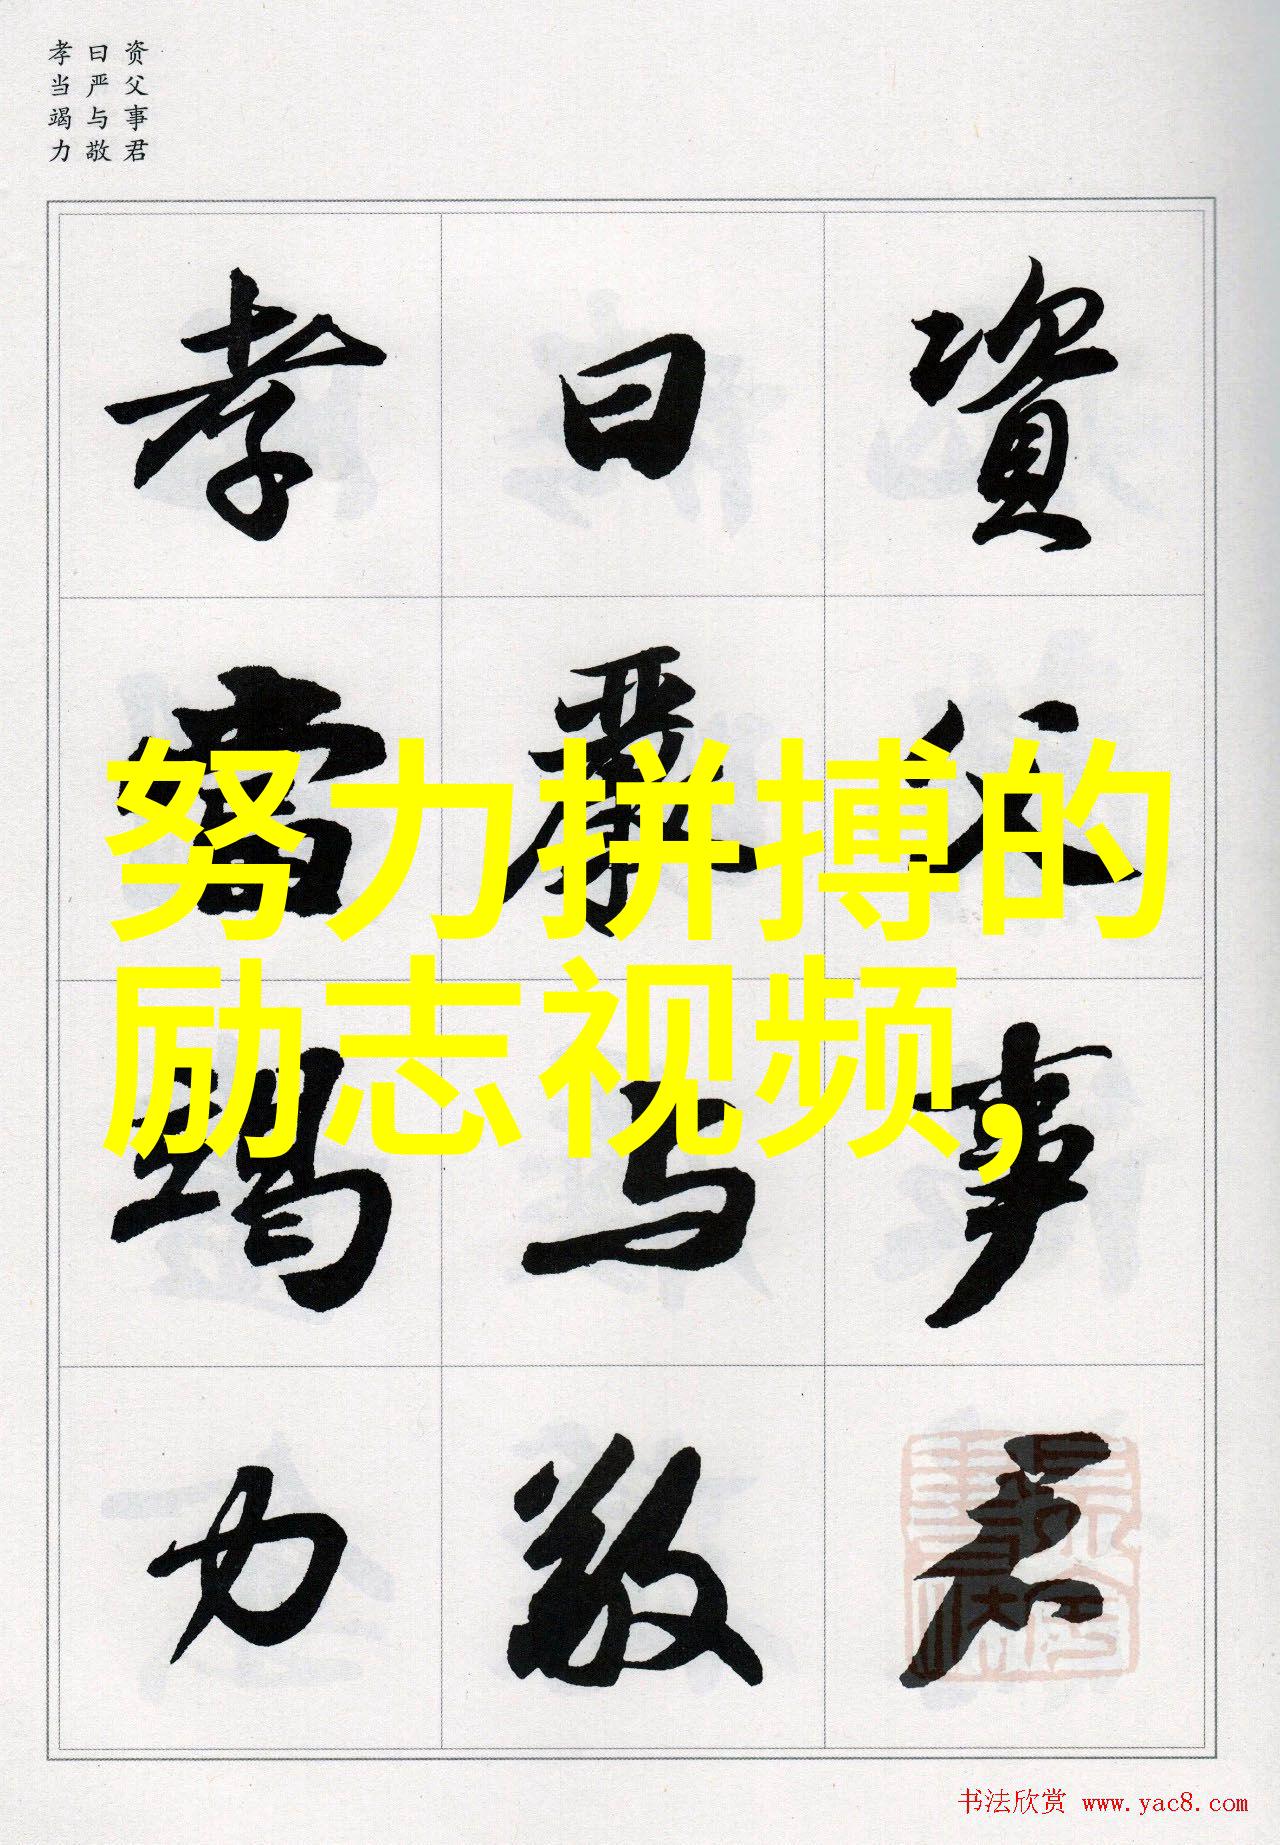 资父事君
曰严与敬
孝当竭力
資父事君
曰嚴与敬
孝當竭力
努力拼搏的
励志视频,
书法欣赏 www.yac8.com